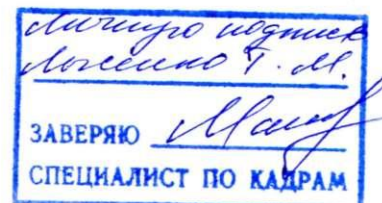 личную подпись
Лысенко Т. М.
ЗАВЕРЯЮ
СПЕЦИАЛИСТ ПО КАДРАМ